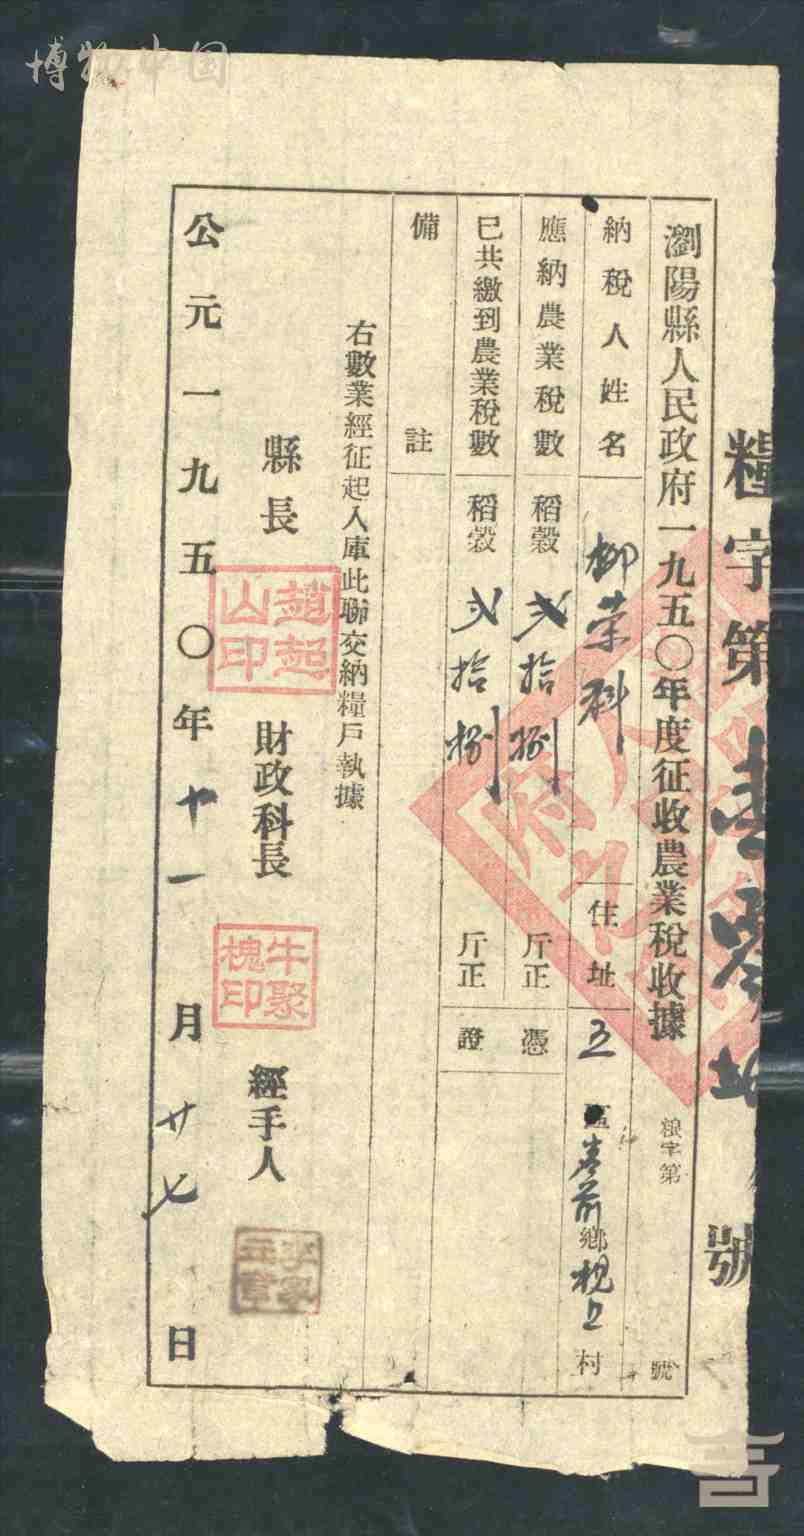 博物中国
糧字第壹零號
瀏陽縣人民政府一九五〇年度征收農業稅收據 粮字第 號
納稅人姓名 柳荣科 住址 五區 鄉 村
應納農業稅數 稻穀 弍拾捌 斤正 憑
已共繳到農業稅數 稻穀 弍拾捌 斤正 證
備註
右數業經征起入庫此聯交納糧戶執據
縣長 趙起山印 財政科長 牛聚槐印 經手人
公元一九五〇年十一月廿七日